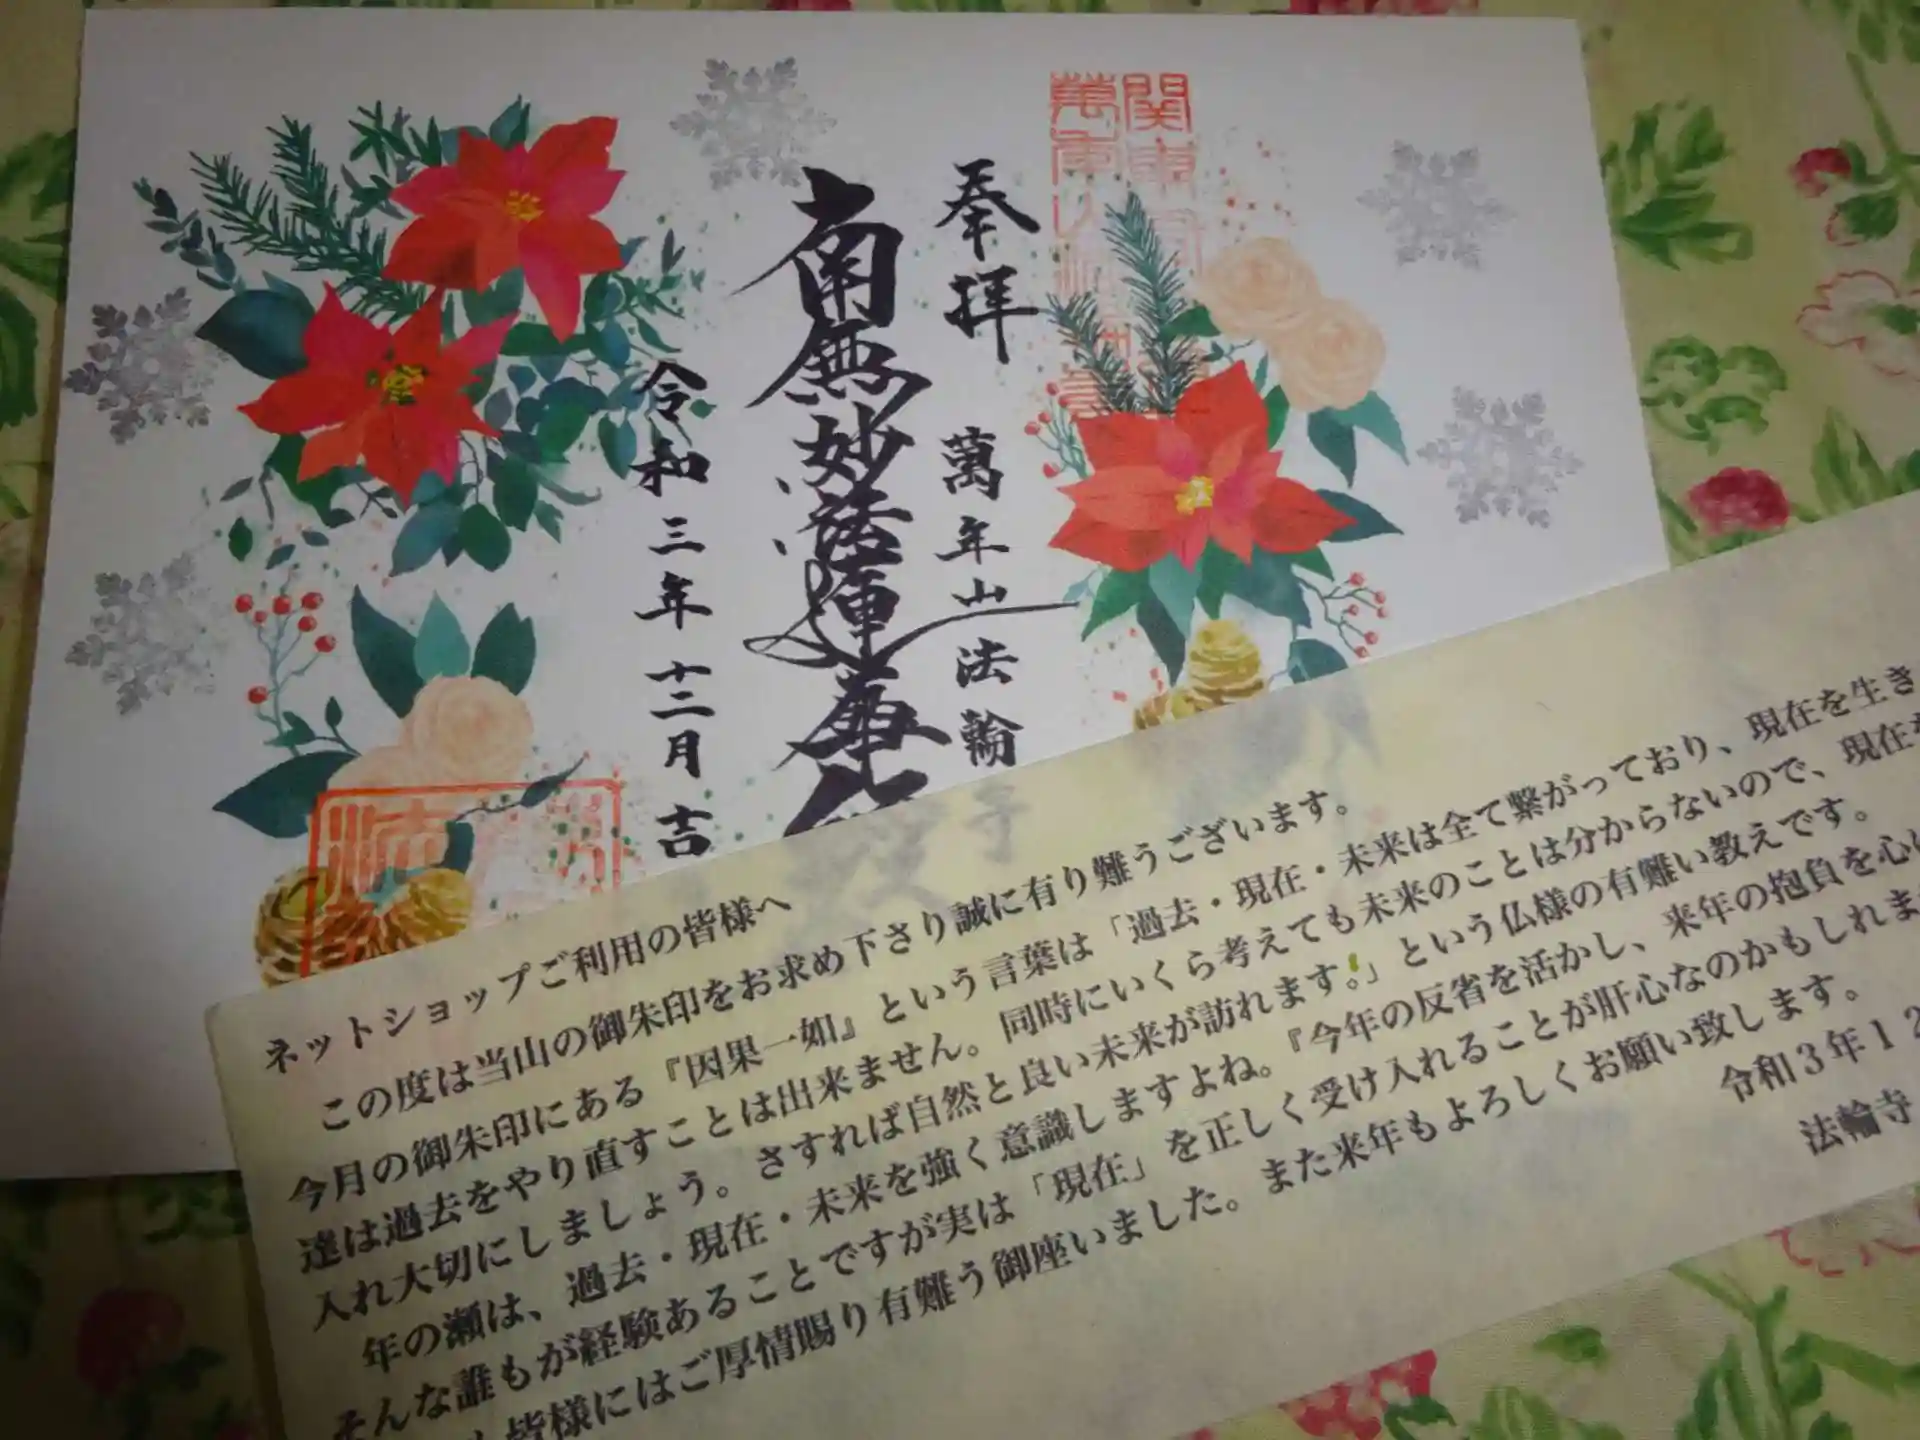 奉拝
萬年山法輪
南無妙法蓮華経
令和三年十二月吉
ネットショップご利用の皆様へ
この度は当山の御朱印をお求め下さり誠に有り難うございます。
今月の御朱印にある『因果一如』という言葉は「過去・現在・未来は全て繋がっており、現在を生き
達は過去をやり直すことは出来ません。同時にいくら考えても未来のことは分からないので、現在を
入れ大切にしましょう。さすれば自然と良い未来が訪れます!」という仏様の有難い教えです。
年の瀬は、過去・現在・未来を強く意識しますよね。『今年の反省を活かし、来年の抱負を心に
そんな誰もが経験あることですが実は「現在」を正しく受け入れることが肝心なのかもしれま
皆様にはご厚情賜り有難う御座いました。また来年もよろしくお願い致します。
令和3年12
法輪寺